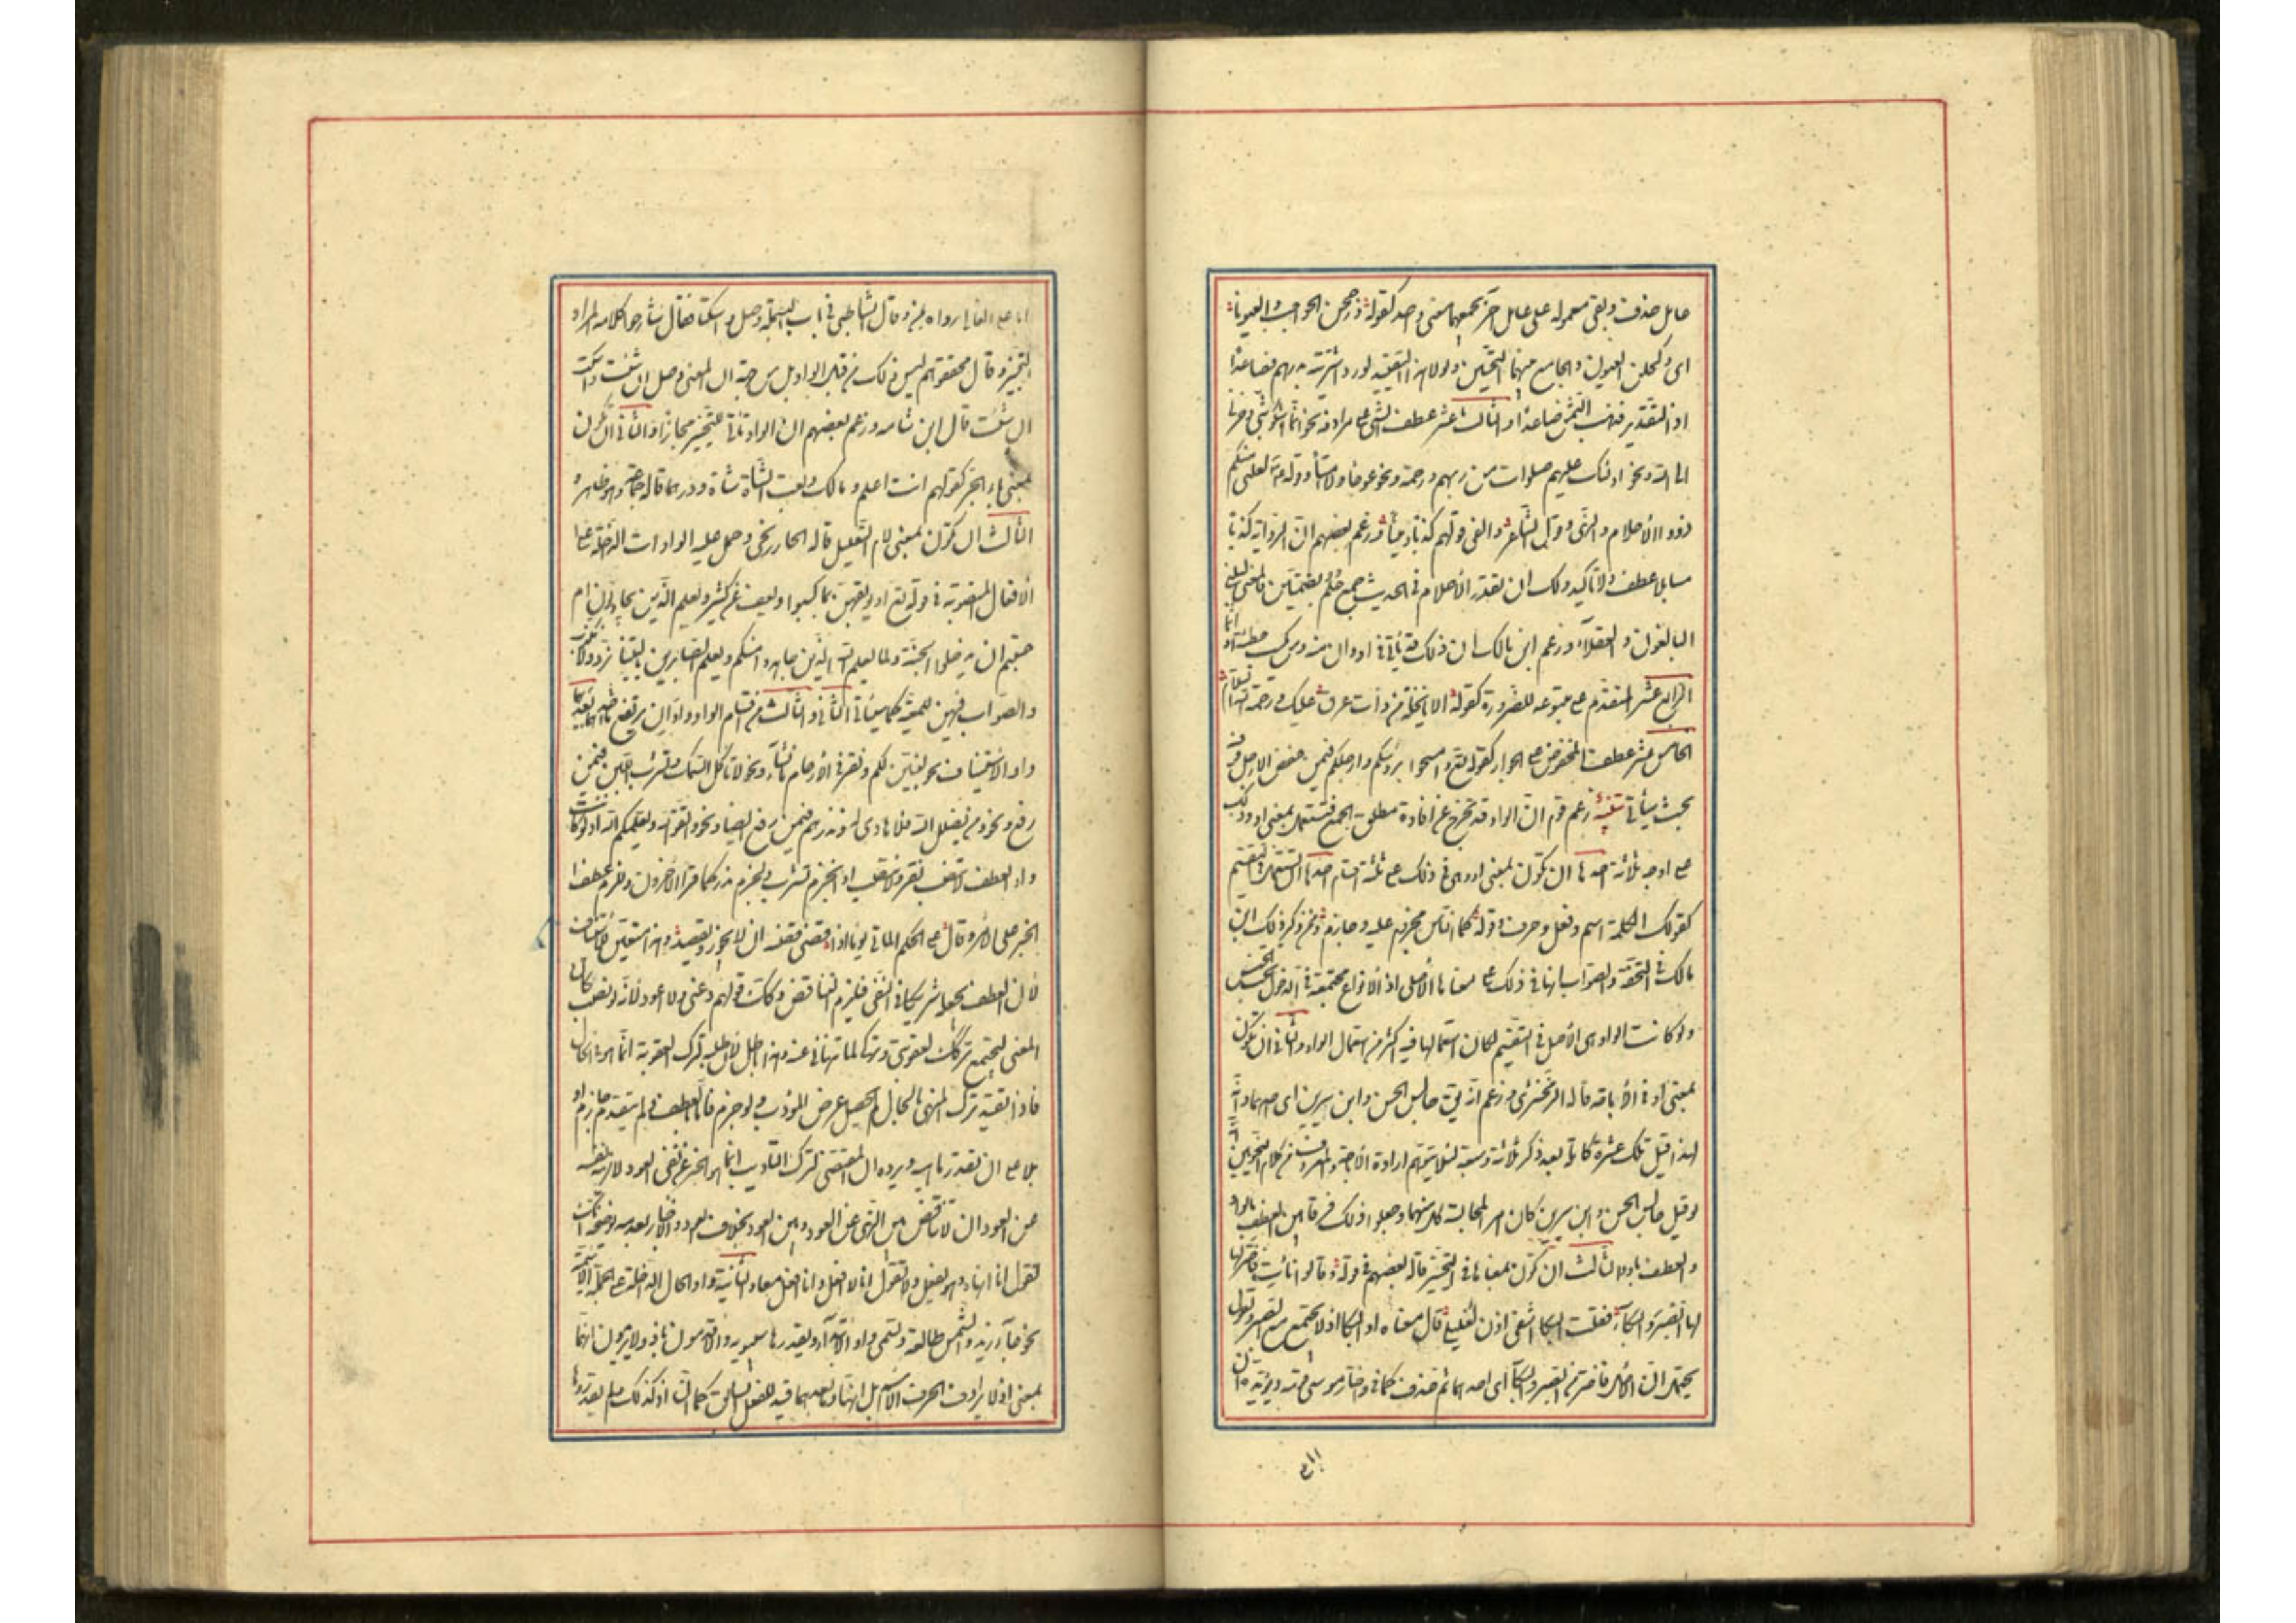 عامل حذف وبقى معموله على عامل آخر يجمعهما معنى واحد كقوله وزججن الحواجب والعيونا
اى وكحلن العيون والجامع بينهما التحسين ولولا هذا التقييد لورد اشتريته بدرهم فصاعدا
اذ التقدير فذهب الثمن صاعدا والثالث عشر عطف الشئ على مرادفه نحو انما اشكو بثى وحزنى
الى الله ونحو اولئك عليهم صلوات من ربهم ورحمة ونحو عوجا ولا امتا وقوله ليلنى منكم
ذوو الاحلام والنهى وقول الشاعر والفى قولها كذبا ومينا وزعم بعضهم ان الرواية كذبا
مبينا فلا عطف ولا تاكيد ولك ان تقدر الاحلام فى الحديث جمع حلم بضمتين فالمعنى ليلنى
البالغون العقلاء وزعم ابن مالك ان ذلك قد ياتى فى او وان منه ومن يكسب خطيئة او اثما
الرابع عشر المقدم على متبوعه للضرورة كقوله الا يا نخلة من ذات عرق عليك ورحمة الله السلام
الخامس عشر عطف المخفوض على الجوار كقوله تعالى وامسحوا برؤسكم وارجلكم فيمن خفض الارجل وفيه
بحث سيأتى تنبيه زعم قوم ان الواو قد تخرج عن افادة مطلق الجمع فتستعمل بمعنى او وذلك
على اوجه ثلاثة احدها ان تكون بمعنى او وهى فى ذلك على ثلثة اقسام احدها ان تستعمل فى التقسيم
كقولك الكلمة اسم وفعل وحرف وقوله كما الناس مجروم عليه وجارم وممن ذكر ذلك ابن
مالك فى التحفة والصواب انها فى ذلك على معناها الاصلى اذ الانواع مجتمعة فى الدخول تحت الجنس
ولو كانت الواو هى الاصل فى التقسيم لكان استعمالها فيه اكثر من استعمال الواو والثانى ان تكون
بمعنى او فى الاباحة قاله الزمخشرى وزعم انه يقال جالس الحسن وابن سيرين اى احدهما وانه
لهذا قيل تلك عشرة كاملة بعد ذكر ثلاثة وسبعة لئلا يتوهم ارادة الاباحة والمعروف من كلام النحويين
لو قيل جالس الحسن وابن سيرين كان امرا بمجالسة كل منهما وجعلوا ذلك فرقا بين العطف بالواو
والعطف باو والثالث ان تكون بمعناها فى التخيير قاله بعضهم فى قوله وقالوا نأت فاختر لها
لها الصبر والبكاء فقلت البكا اشفى اذن لغليلى قال معناه او البكا اذ لا يجتمع مع الصبر وتقول
يحتمل ان الاصل فاختر من الصبر والبكاء اى احدهما ثم حذف من كما فى واختار موسى قومه ويؤيده ان
ابا على القالى رواه بمن وقال الشاطبى فى باب البسملة وصل واسكتا فقال شارحوا كلامه المراد
التخيير وقال محققوهم ليس ذلك من قبل الواو بل من جهة ان المعنى وصل ان شئت واسكت
ان شئت قال ابن شامة وزعم بعضهم ان الواو تاتى للتخيير مجازا والثانى ان تكون
بمعنى باء الجر كقولهم انت اعلم ومالك وبعت الشاة شاة ودرهما قاله جماعة وهو ظاهر و
الثالث ان تكون بمعنى لام التعليل قاله الخارزنجى وحمل عليه الواوات الداخلة على
الافعال المنصوبة فى قوله تعالى او يوبقهن بما كسبوا ويعف عن كثير ويعلم الذين يجادلون ام
حسبتم ان تدخلوا الجنة ولما يعلم الله الذين جاهدوا منكم ويعلم الصابرين يا ليتنا نرد ولا نكذب
والصواب انهن للمعية كما سيأتى الثانى والثالث من اقسام الواو واوان يرتفع ما بعدهما
واو الاستيناف نحو لنبين لكم ونقر فى الارحام ما نشاء ونحو لا تاكل السمك وتشرب اللبن فيمن
رفع ونحو من يضلل الله فلا هادى له ونذرهم فيمن رفع ايضا ونحو واتقوا الله ويعلمكم الله اذ لو كانت
واو العطف لانتصب نقر ولانتصب او انجزم تشرب ولجزم نذر كما قرأ الاخرون وللزم عطف
الخبر على الامر وقال على الحكم الماتى يوما اذا قضى قضيته ان لا يجور ويقصد وهذا متعين للاستيناف
لان العطف يجعله شريكا فى النفى فيلزم التناقض وكذلك قولهم دعنى ولا اعود لانه لو نصب كان
المعنى ليجتمع تركك لعقوبتى وتركى لما تنهانى عنه وهذا باطل لان طلبه لترك العقوبة انما هو فى الحال
فاذا تقيد ترك المنهى بالحال لم يحصل غرض المؤدب ولو جزم فاما بالعطف ولم يتقدم جازم او
بلا على ان تقدر ناهية ويرده ان المقتضى لترك التأديب انما هو الخبر عن نفى العود لا نهيه نفسه
عن العود اذ لا تناقض بين النهى عن العود وبين العود بخلاف العود والاخبار بعدمه ويوضحه انك
تقول انا انهاه وهو يفعل ولا تقول انا لا افعل وانا افعل معا والثانية واو الحال الداخلة على الجملة الاسمية
نحو جاء زيد والشمس طالعة وتسمى واو الابتداء ويقدرها سيبويه والاقدمون باذ ولا يريدون انها
بمعنى اذ لا يرادف الحرف الاسم بل انها وما بعدها قيد للفعل السابق كما ان اذ كذلك ولم يقدروها